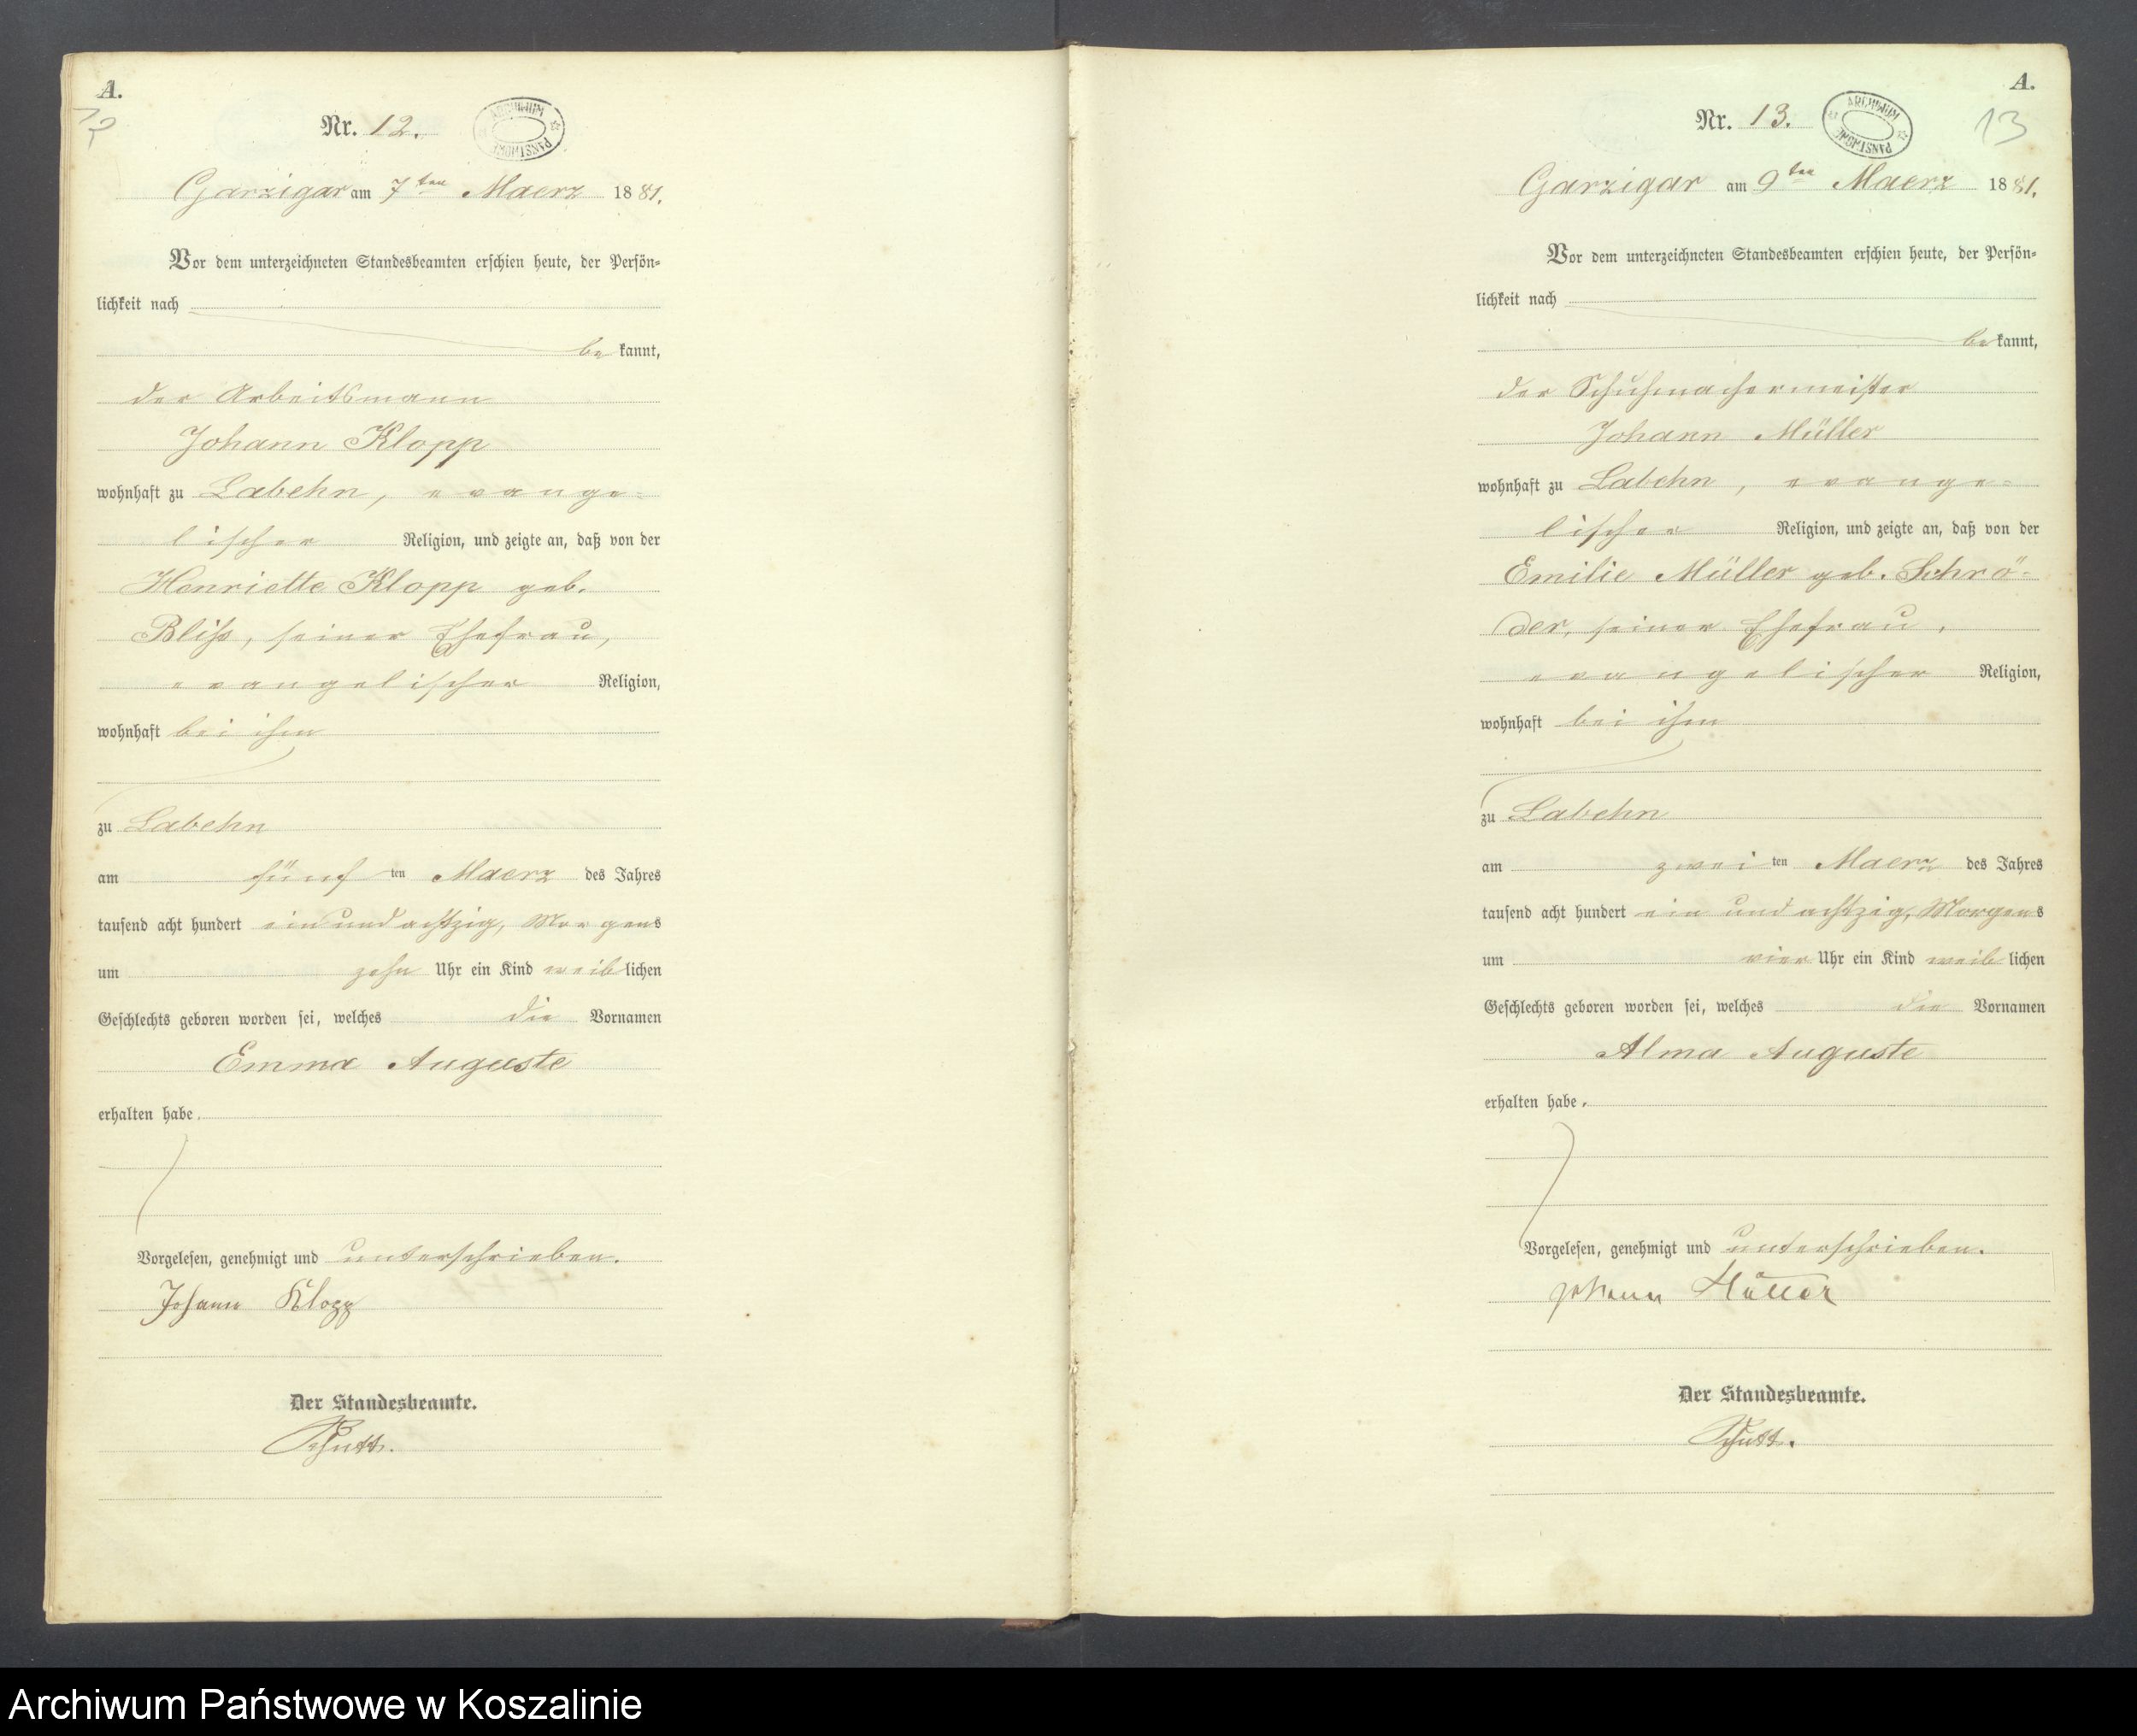 A.
12
Nr. 12.
ARCHIWUM PAŃSTWOWE
Garzigar am 7ten Maerz 1881.
Vor dem unterzeichneten Standesbeamten erschien heute, der Persön-
lichkeit nach
bekannt,
der Arbeitsmann
Johann Klopp
wohnhaft zu Labehn, evange-
lischer Religion, und zeigte an, daß von der
Henriette Klopp geb.
Bliß, seiner Ehefrau,
evangelischer Religion,
wohnhaft bei ihm
zu Labehn
am fünf ten Maerz des Jahres
tausend acht hundert ein und achtzig, Morgens
um zehn Uhr ein Kind weiblichen
Geschlechts geboren worden sei, welches die Vornamen
Emma Auguste
erhalten habe.
Vorgelesen, genehmigt und unterschrieben.
Johann Klopp
Der Standesbeamte.
A.
13
Nr. 13.
ARCHIWUM PAŃSTWOWE
Garzigar am 9ten Maerz 1881.
Vor dem unterzeichneten Standesbeamten erschien heute, der Persön-
lichkeit nach
bekannt,
der Schuhmachermeister
Johann Müller
wohnhaft zu Labehn, evange-
lischer Religion, und zeigte an, daß von der
Emilie Müller geb. Schrö-
der, seiner Ehefrau,
evangelischer Religion,
wohnhaft bei ihm
zu Labehn
am zwei ten Maerz des Jahres
tausend acht hundert ein und achtzig, Morgens
um vier Uhr ein Kind weiblichen
Geschlechts geboren worden sei, welches die Vornamen
Alma Auguste
erhalten habe.
Vorgelesen, genehmigt und unterschrieben.
Johann Müller
Der Standesbeamte.
Archiwum Państwowe w Koszalinie